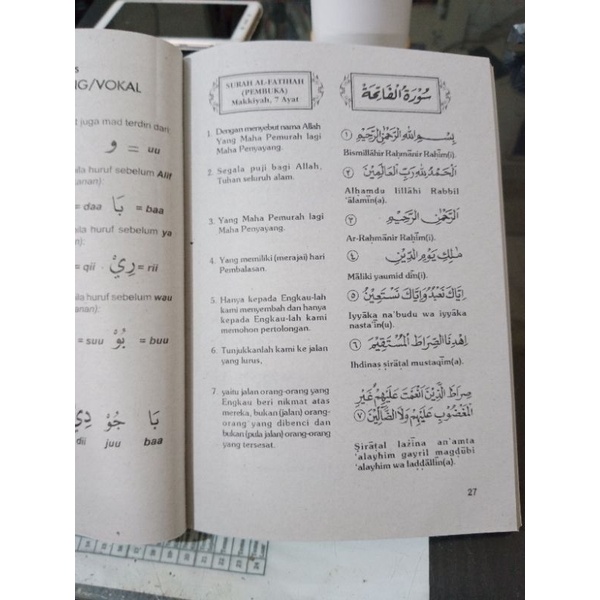 NG/VOKAL
juga mad terdiri dari:
و = uu
huruf sebelum Alif
= daa بَا = baa
huruf sebelum ya
= qii رِيْ = rii
huruf sebelum wau
= suu بُوْ = buu
بَا جُوْ دِيْ
dii juu baa
SURAH AL-FATIHAH
(PEMBUKA)
Makkiyah, 7 Ayat
سُوْرَةُ الْفَاتِحَةِ
1. Dengan menyebut nama Allah
Yang Maha Pemurah lagi
Maha Penyayang.
بِسْمِ اللهِ الرَّحْمٰنِ الرَّحِيْمِ ١
Bismillāhir Raḥmānir Raḥīm(i).
2. Segala puji bagi Allah,
Tuhan seluruh alam.
اَلْحَمْدُ لِلّٰهِ رَبِّ الْعَالَمِيْنَ ٢
Alḥamdu lillāhi Rabbil
'ālamīn(a).
3. Yang Maha Pemurah lagi
Maha Penyayang.
اَلرَّحْمٰنِ الرَّحِيْمِ ٣
Ar-Raḥmānir Raḥīm(i).
4. Yang memiliki (merajai) hari
Pembalasan.
مٰلِكِ يَوْمِ الدِّيْنِ ٤
Māliki yaumid dīn(i).
5. Hanya kepada Engkau-lah
kami menyembah dan hanya
kepada Engkau-lah kami
memohon pertolongan.
اِيَّاكَ نَعْبُدُ وَاِيَّاكَ نَسْتَعِيْنُ ٥
Iyyāka na'budu wa iyyāka
nasta'īn(u).
6. Tunjukkanlah kami ke jalan
yang lurus,
اِهْدِنَا الصِّرَاطَ الْمُسْتَقِيْمَ ٦
Ihdinaṣ ṣirāṭal mustaqīm(a).
7. yaitu jalan orang-orang yang
Engkau beri nikmat atas
mereka, bukan (jalan) orang-
orang yang dibenci dan
bukan (pula jalan) orang-orang
yang tersesat.
صِرَاطَ الَّذِيْنَ اَنْعَمْتَ عَلَيْهِمْ غَيْرِ
الْمَغْضُوْبِ عَلَيْهِمْ وَلَا الضَّآلِّيْنَ ٧
Ṣirāṭal lażīna an'amta
'alayhim gayril magḍūbi
'alayhim wa laḍḍāllīn(a).
27